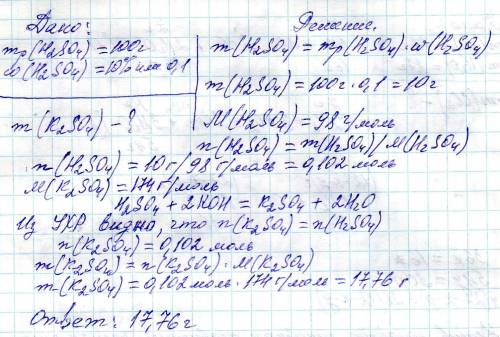 Дано:
mр(H₂SO₄)=100г
ω(H₂SO₄)=10% или 0,1
m(K₂SO₄) - ?
Решение.
m(H₂SO₄)=mр(H₂SO₄)·ω(H₂SO₄)
m(H₂SO₄)=100г·0,1=10г
M(H₂SO₄)=98 г/моль
n(H₂SO₄)=m(H₂SO₄)/M(H₂SO₄)
n(H₂SO₄)=10г/98 г/моль=0,102 моль
M(K₂SO₄)=174г/моль
H₂SO₄+2KOH=K₂SO₄+2H₂O
Из УХР видно, что n(K₂SO₄)=n(H₂SO₄)
n(K₂SO₄)=0,102 моль
m(K₂SO₄)=n(K₂SO₄)·M(K₂SO₄)
m(K₂SO₄)=0,102 моль·174 г/моль=17,76 г
Ответ: 17,76г